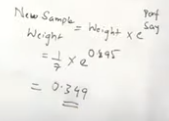 New Sample Weight = Weight × e^Perf Say
= 1/7 × e^0.895
= 0.349